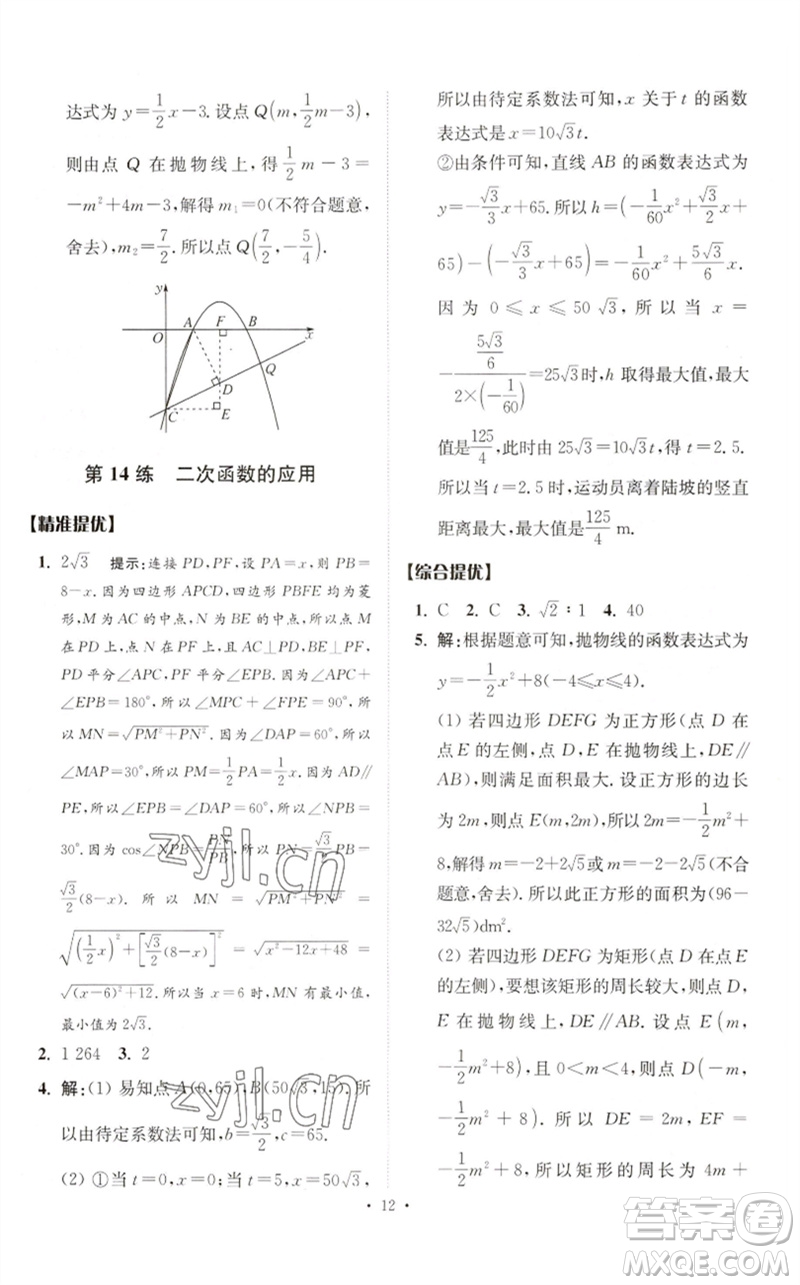 达式为 y=1/2x-3. 设点 Q(m,1/2m-3),
则由点 Q 在抛物线上, 得 1/2m-3=
-m²+4m-3, 解得 m₁=0(不符合题意,
舍去), m₂=7/2. 所以点 Q(7/2,-5/4).
y
A F B
O x
D Q
C E
第 14 练 二次函数的应用
【精准提优】
1. 2√3 提示:连接 PD,PF, 设 PA=x, 则 PB=
8-x. 因为四边形 APCD, 四边形 PBFE 均为菱
形, M 为 AC 的中点, N 为 BE 的中点, 所以点 M
在 PD 上, 点 N 在 PF 上, 且 AC⊥PD, BE⊥PF,
PD 平分∠APC, PF 平分∠EPB. 因为∠APC+
∠EPB=180°, 所以∠MPC+∠FPE=90°, 所
以 MN=√(PM²+PN²). 因为∠DAP=60°, 所以
∠MAP=30°, 所以 PM=1/2PA=1/2x. 因为 AD∥
PE, 所以∠EPB=∠DAP=60°, 所以∠NPB=
30°. 因为 cos∠NPB=PN/PB, 所以 PN=√3/2PB=
√3/2(8-x). 所以 MN=√(PM²+PN²)=
√((1/2x)²+[√3/2(8-x)]²)=√(x²-12x+48)=
√((x-6)²+12). 所以当 x=6 时, MN 有最小值,
最小值为 2√3.
2. 1 264 3. 2
4. 解:(1) 易知点 A(0,65), B(50√3,15). 所
以由待定系数法可知, b=√3/2, c=65.
(2) ①当 t=0, x=0; 当 t=5, x=50√3,
所以由待定系数法可知, x 关于 t 的函数
表达式是 x=10√3t.
②由条件可知, 直线 AB 的函数表达式为
y=-√3/3x+65. 所以 h=(-1/60x²+√3/2x+
65)-(-√3/3x+65)=-1/60x²+5√3/6x.
因为 0≤x≤50√3, 所以当 x=
-(5√3/6)/(2×(-1/60))=25√3时, h 取得最大值, 最大
值是125/4, 此时由 25√3=10√3t, 得 t=2.5.
所以当 t=2.5 时, 运动员离着陆坡的竖直
距离最大, 最大为125/4 m.
【综合提优】
1. C 2. C 3. √2∶1 4. 40
5. 解:根据题意可知, 抛物线的函数表达式为
y=-1/2x²+8(-4≤x≤4).
(1) 若四边形 DEFG 为正方形(点 D 在
点 E 的左侧, 点 D,E 在抛物线上, DE∥
AB), 则满足面积最大. 设正方形的边长
为 2m, 则点 E(m,2m), 所以 2m=-1/2m²+
8, 解得 m=-2+2√5或 m=-2-2√5(不合
题意, 舍去). 所以此正方形的面积为(96-
32√5)dm².
(2) 若四边形 DEFG 为矩形(点 D 在点
E 的左侧), 要想该矩形的周长较大, 则点 D,
E 在抛物线上, DE∥AB. 设点 E(m,
-1/2m²+8), 且 0<m<4, 则点 D(-m,
-1/2m²+8). 所以 DE=2m, EF=
-1/2m²+8, 所以矩形的周长为 4m+
· 12 ·
zyjl.cn
zyjl.cn
答案圈
MXQE.COM